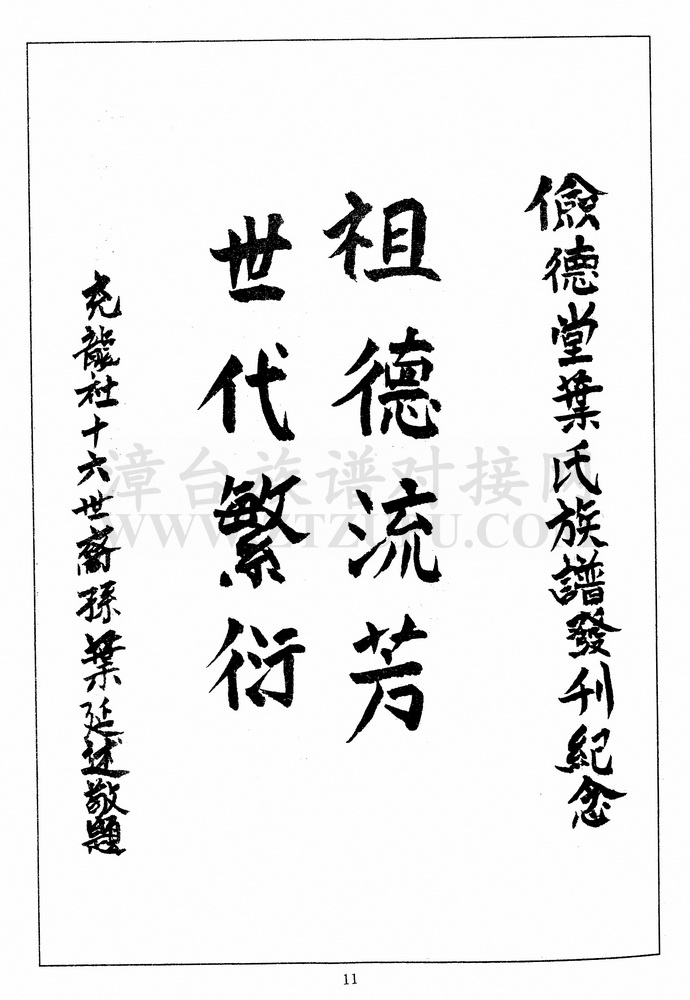 儉德堂葉氏族譜發刊紀念
祖德流芳
世代繁衍
充龍社十六世裔孫葉延述敬題
漳台族谱对接网
11